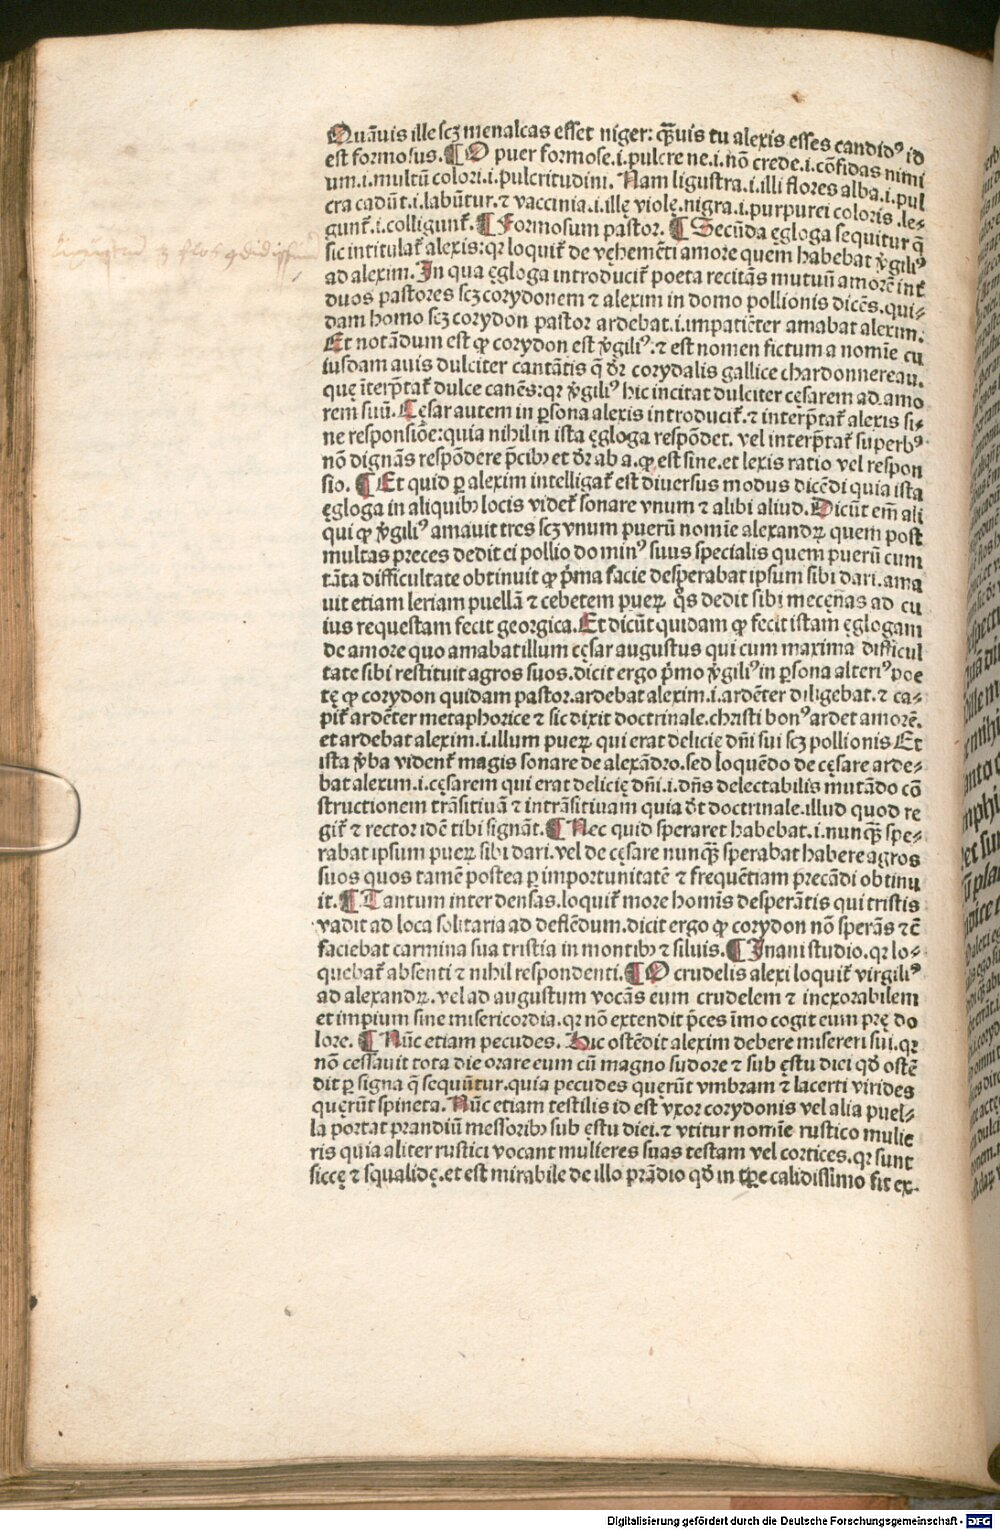 Quāuis ille scz menalcas esset niger: q̄uis tu alexis esses candidꝰ id
est formosus. ¶ O puer formose.i.pulcre ne.i.nō crede.i.cōfidas nimi
um.i.multū colori.i.pulcritudini. Nam ligustra.i.illi flores alba.i.pul
cra cadūt.i.labūtur.⁊ vaccinia.i.illę violę.nigra.i.purpurei coloris.le⸗
gunt̄.i.colligunt̄. ¶ Formosum pastor. ¶ Secūda ęgloga sequitur q̄
sic intitulat̄ alexis: qꝛ loquit̄ de vęhemēti amore quem habebat v̓giliꝰ
ad alexim. In qua ęgloga introducit̄ poeta recitās mutuū amorē int̄
duos pastores scz corydonem ⁊ alexim in domo pollionis dicēs.qui⸗
dam homo scz corydon pastor ardebat.i.impatiēter amabat alexim.
Et notādum est ꝙ corydon est v̓giliꝰ.⁊ est nomen fictum a nomīe cu
iusdam auis dulciter cantātis q̄ dr̄ corydalis gallice chardonnereau.
quę īterp̄tat̄ dulce canēs: qꝛ v̓giliꝰ hic incitat dulciter cęsarem ad.amo
rem suū. Cęsar autem in ꝑsona alexis introducit̄.⁊ interp̄tat̄ alexis si⸗
ne responsiōe: quia nihil in ista ęgloga respōdet. vel interp̄tat̄ superbꝰ
nō dignās respōdere p̄cibꝫ et dr̄ ab a.ꝙ est sine.et lexis ratio vel respon
sio. ¶ Et quid ꝑ alexim intelligat̄ est diuersus modus dicēdi quia ista
ęgloga in aliquibꝫ locis videt̄ sonare vnum ⁊ alibi aliud. Dicūt em̄ ali
qui ꝙ v̓giliꝰ amauit tres scz vnum puerū nomīe alexandꝝ quem post
multas preces dedit ei pollio dominꝰ suus specialis quem puerū cum
tāta difficultate obtinuit ꝙ p̄ma facie desperabat ipsum sibi dari.ama
uit etiam leriam puellā ⁊ cebetem pueꝝ q̄s dedit sibi mecęnas ad cu
ius requestam fecit georgica. Et dicūt quidam ꝙ fecit istam ęglogam
de amore quo amabat illum cęsar augustus qui cum maxima difficul
tate sibi restituit agros suos.dicit ergo p̄mo v̓giliꝰ in ꝑsona alteriꝰ poe
tę ꝙ corydon quidam pastor.ardebat alexim.i.ardēter diligebat.⁊ ca⸗
pit̄ ardēter metaphorice ⁊ sic dixit doctrinale.christi bonꝰ ardet amorē.
et ardebat alexim.i.illum pueꝝ qui erat delicię dn̄i sui scz pollionis Et
ista v̓ba vident̄ magis sonare de alexādro.sed loquēdo de cęsare arde⸗
bat alexim.i.cęsarem qui erat delicię dn̄i.i.dn̄s delectabilis mutādo cō
structionem trāsitiuā ⁊ intrāsitiuam quia dr̄ doctrinale.illud quod re
git̄ ⁊ rector idē tibi signāt. ¶ Nec quid speraret habebat.i.nunq̄ spe⸗
rabat ipsum pueꝝ sibi dari.vel de cęsare nunq̄ sperabat habere agros
suos quos tamē postea ꝑ importunitatē ⁊ frequētiam precādi obtinu
it. ¶ Tantum inter densas.loquit̄ more homīs desperātis qui tristis
vadit ad loca solitaria ad deflēdum.dicit ergo ꝙ corydon nō sperās ⁊c̄
faciebat carmina sua tristia in montibꝫ ⁊ siluis. ¶ Inani studio.qꝛ lo⸗
quebat̄ absenti ⁊ nihil respondenti. ¶ O crudelis alexi loquit̄ virgiliꝰ
ad alexandꝝ.vel ad augustum vocās eum crudelem ⁊ inexorabilem
et impium sine misericordia.qꝛ nō extendit p̄ces īmo cogit eum prę do
lore. ¶ Nūc etiam pecudes. Hic ostēdit alexim debere misereri sui.qꝛ
nō cessauit tota die orare eum cū magno sudore ⁊ sub ęstu diei qd̓ ostē
dit ꝑ signa q̄ sequūtur.quia pecudes quęrūt vmbram ⁊ lacerti virides
quęrūt spineta. Nūc etiam testilis id est vxor corydonis vel alia puel⸗
la portat prandiū messoribꝫ sub ęstu diei.⁊ vtitur nomīe rustico mulie
ris quia aliter rustici vocant mulieres suas testam vel cortices.qꝛ sunt
siccę ⁊ squalidę.et est mirabile de illo prādio qd̓ in tp̄re calidissimo fit ex⸗
Digitalisierung gefördert durch die Deutsche Forschungsgemeinschaft - DFG